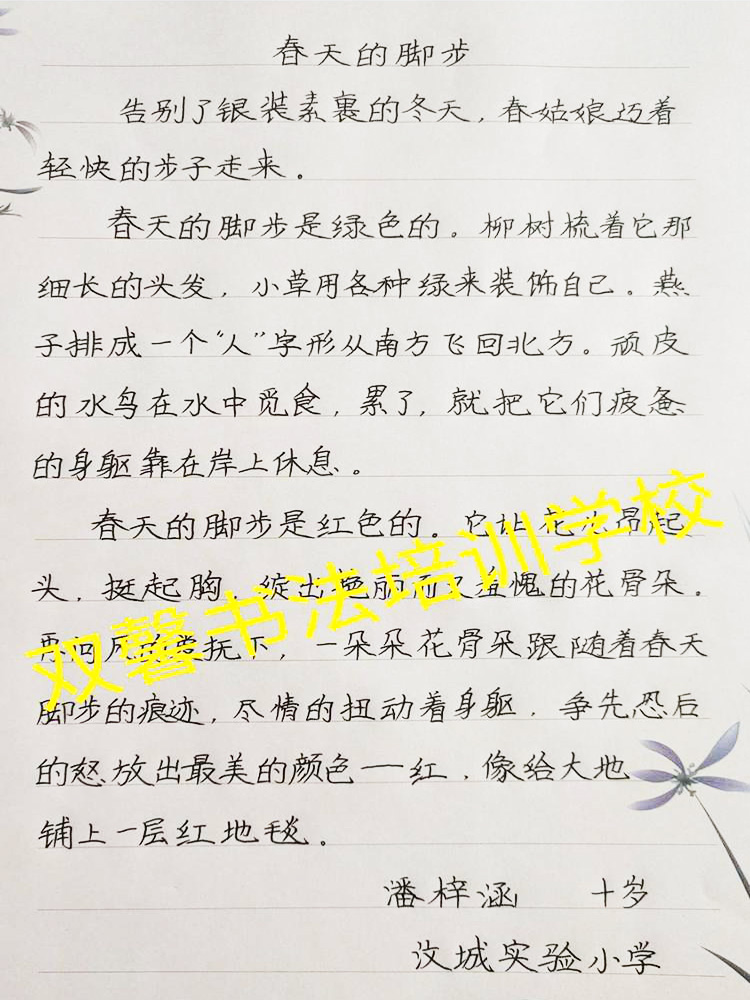 春天的脚步
告别了银装素裹的冬天，春姑娘迈着
轻快的步子走来。
春天的脚步是绿色的。柳树梳着它那
细长的头发，小草用各种绿来装饰自己。燕
子排成一个“人”字形从南方飞回北方。顽皮
的水鸟在水中觅食，累了，就把它们疲惫
的身躯靠在岸上休息。
春天的脚步是红色的。它让花头昂起
头，挺起胸，绽出艳丽而又羞愧的花骨朵。
抚下，一朵朵花骨朵跟随着春天
脚步的痕迹，尽情的扭动着身躯，争先恐后
的怒放出最美的颜色——红，像给大地
铺上一层红地毯。
潘梓涵 十岁
汶城实验小学
双馨书法培训学校